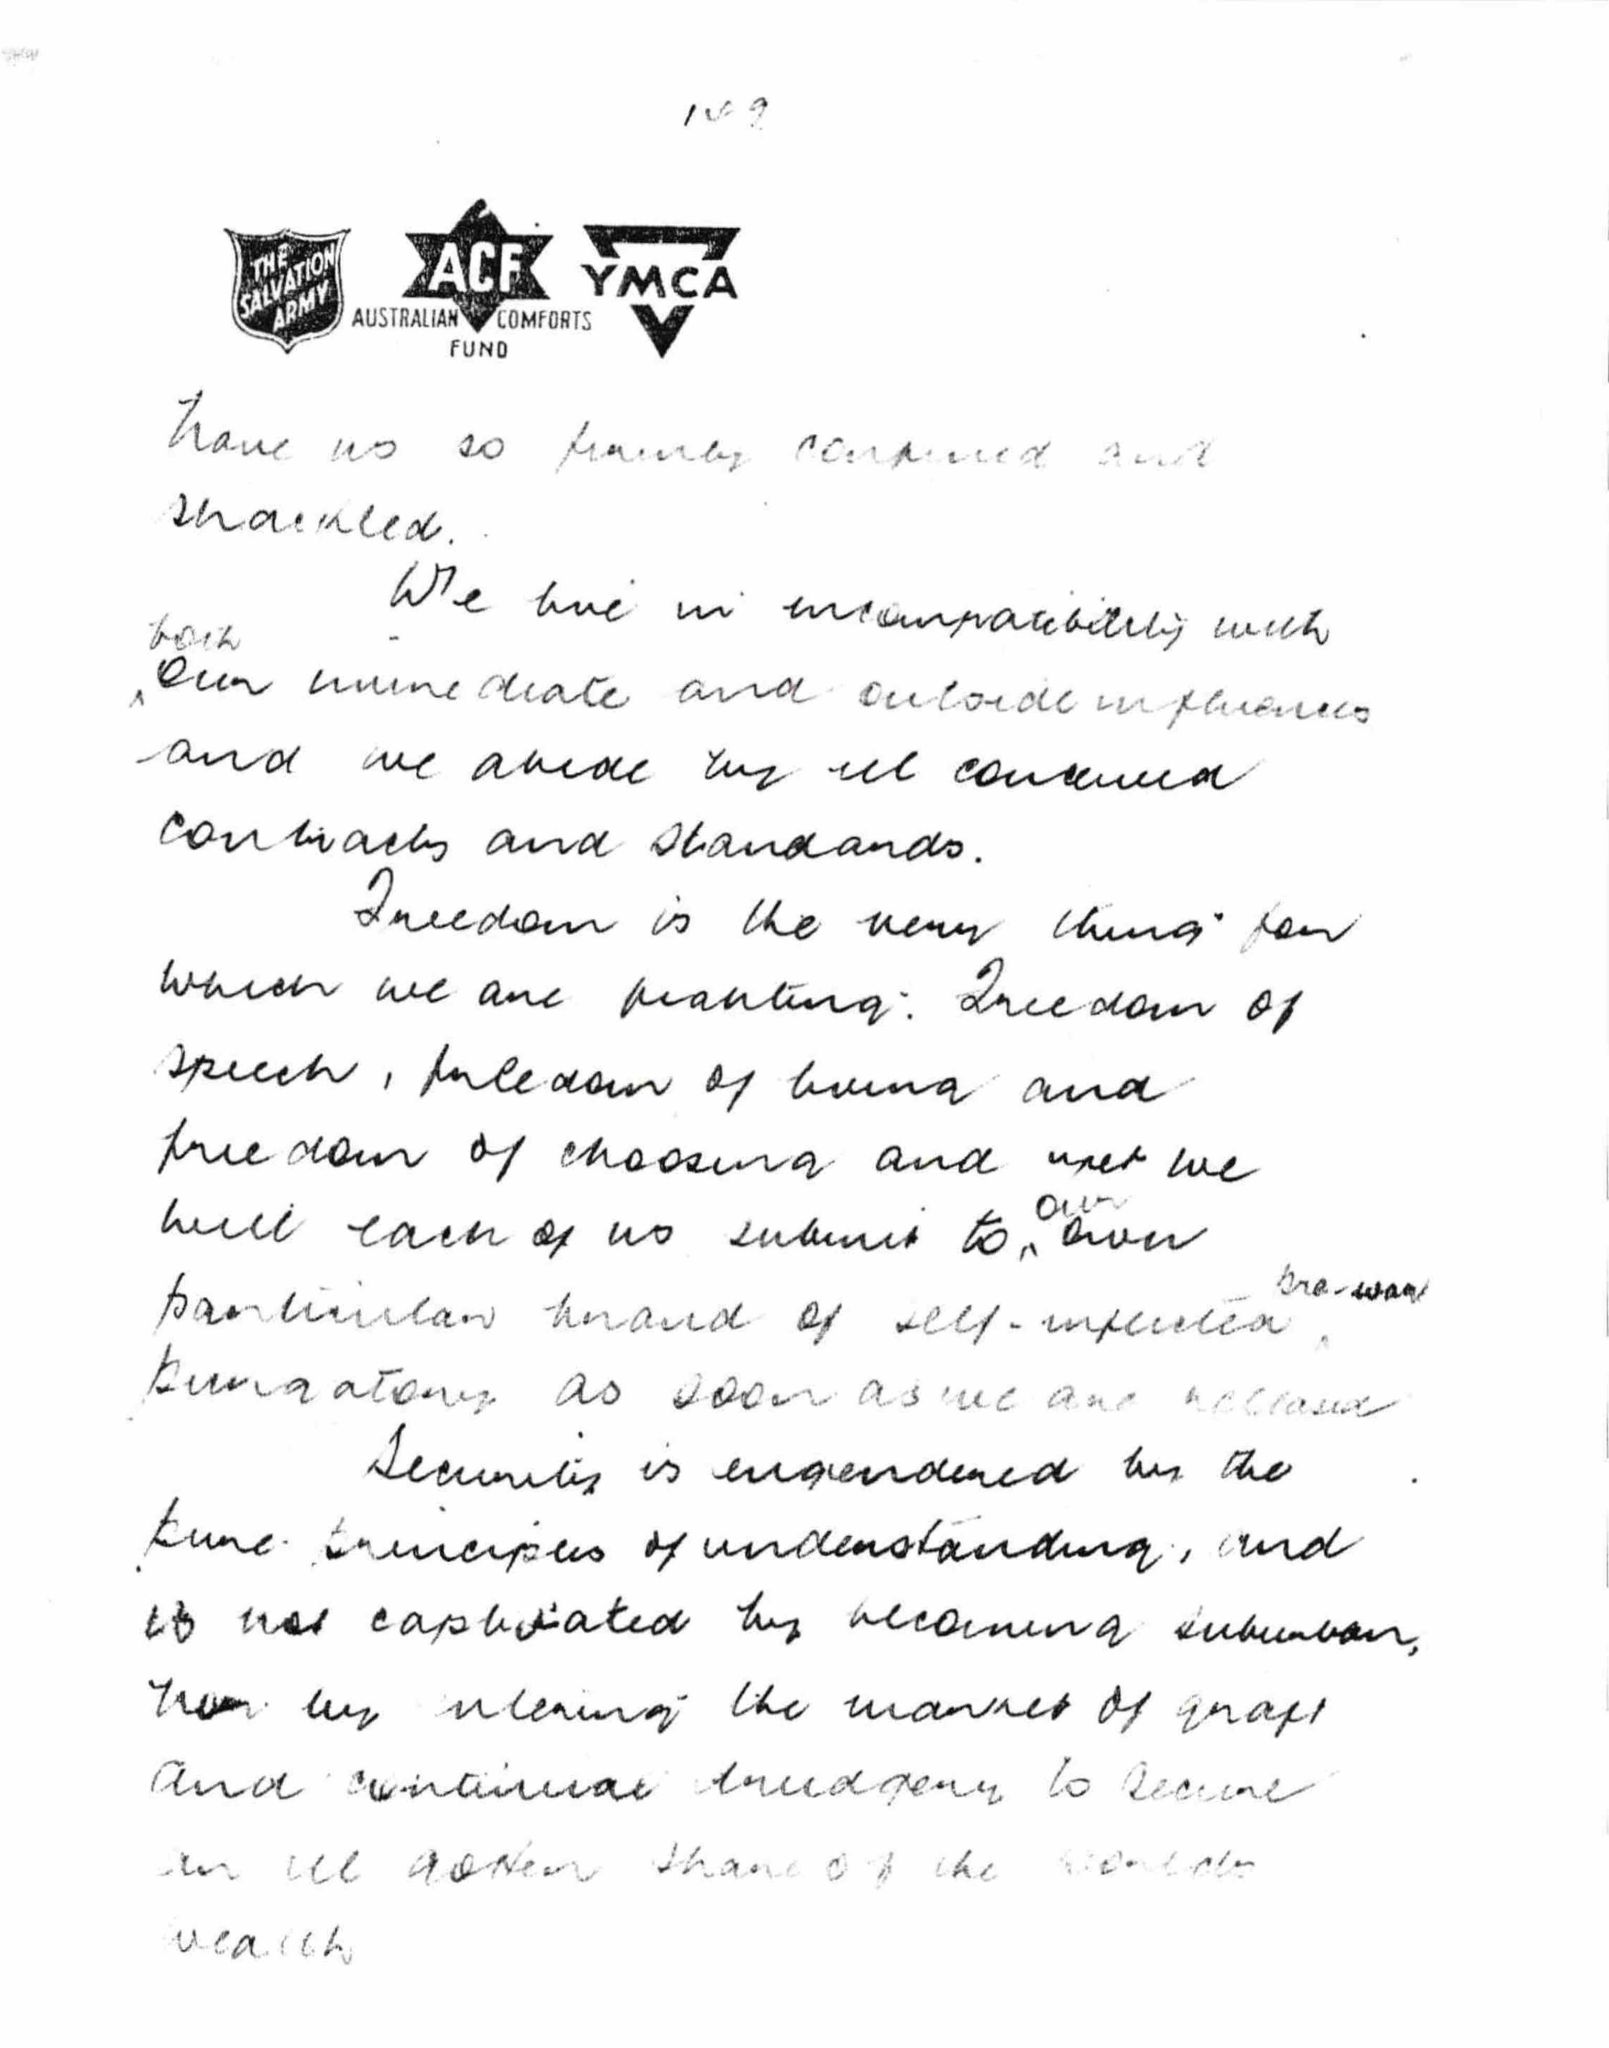 149
THE SALVATION ARMY
ACF
AUSTRALIAN COMFORTS FUND
YMCA
have us so firmly confined and
shackled.
We live in incompatibility with
both
our immediate and outside influences
and we abide by ill conceived
contracts and standards.
Freedom is the very thing for
which we are fighting. Freedom of
speech, freedom of living and
freedom of choosing and yet we
will each of us submit to our own
particular brand of self-inflicted pre-war
purgatory as soon as we are released
Security is engendered by the
pure principles of understanding, and
is not captivated by becoming suburban,
nor by entering the market of graft
and continual drudgery to secure
an ill gotten share of the worlds
wealth